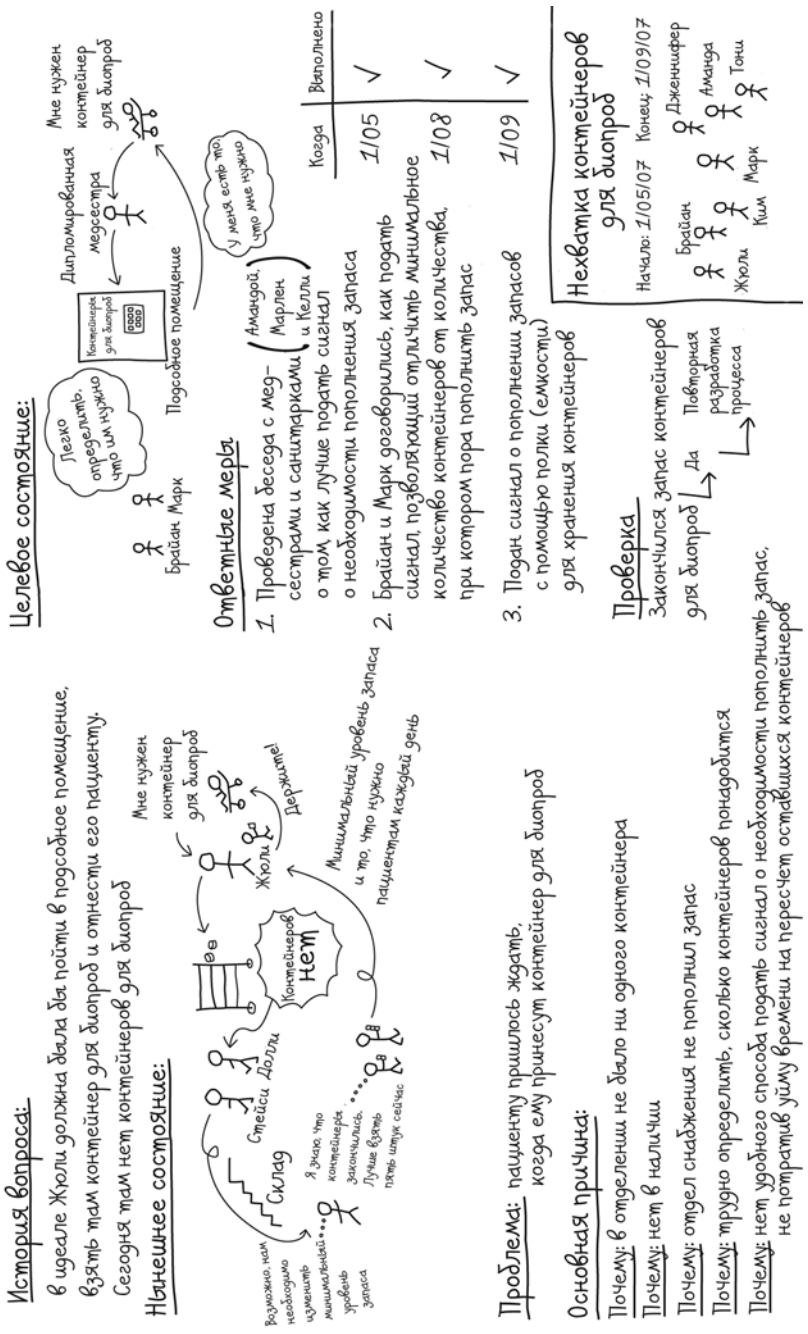 История вопроса:
в идеале Жюли должна была бы пойти в подсобное помещение,
взять там контейнер для биопроб и отнести его пациенту.
Сегодня там нет контейнеров для биопроб
Нынешнее состояние:
Мне нужен
контейнер
для биопроб
Жюли
Держите!
Контейнеров
нет
Стейси Долли
Склад
Возможно, нам
необходимо
изменить
минимальный
уровень
запаса
Я знаю, что
контейнеры
закончились.
Лучше взять
пять штук сейчас
Минимальный уровень запаса
и то, что нужно
пациентам каждый день
Проблема: пациенту пришлось ждать,
когда ему принесут контейнер для биопроб
Основная причина:
Почему: в отделении не было ни одного контейнера
Почему: нет в наличии
Почему: отдел снабжения не пополнил запас
Почему: трудно определить, сколько контейнеров понадобится
Почему: нет удобного способа подать сигнал о необходимости пополнить запас,
не потратив уйму времени на пересчет оставшихся контейнеров
Целевое состояние:
Брайан Марк
Легко
определить,
что им нужно
Контейнеры
для биопроб
Подсобное помещение
Дипломированная
медсестра
Мне нужен
контейнер
для биопроб
У меня есть то,
что мне нужно
Ответные меры
Когда Выполнено
1. Проведена беседа с мед-
сестрами и санитарками
(Амандой,
Марлен
и Келли)
о том, как лучше подать сигнал
о необходимости пополнения запаса
1/05 √
2. Брайан и Марк договорились, как подать
сигнал, позволяющий отличить минимальное
количество контейнеров от количества,
при котором пора пополнить запас
1/08 √
3. Подан сигнал о пополнении запасов
с помощью полки (емкости)
для хранения контейнеров
1/09 √
Проверка
Закончился запас контейнеров
для биопроб
Да
Повторная
разработка
процесса
Нехватка контейнеров
для биопроб
Начало: 1/05/07 Конец: 1/09/07
Брайан
Жюли
Ким
Марк
Дженнифер
Аманда
Тони